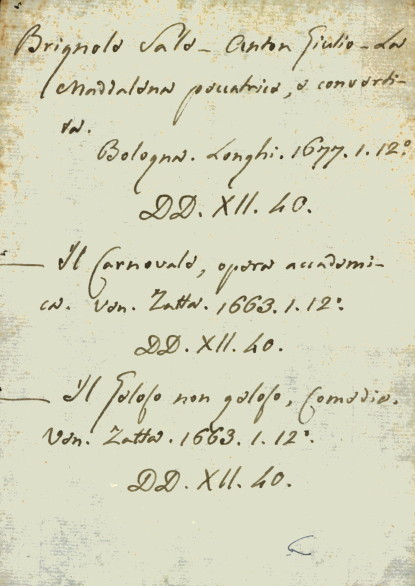 Brignole Sale - Anton Giulio - La
Maddalena peccatrice, e converti-
ta.
Bologna. Longhi. 1677. 1. 12º
DD. XII. 40.
— Il Carnovale, opera accademi-
ca. Ven. Zatta. 1663. 1. 12º.
DD. XII. 40.
— Il Geloso non geloso, Comedia.
Ven. Zatta. 1663. 1. 12º.
DD. XII. 40.